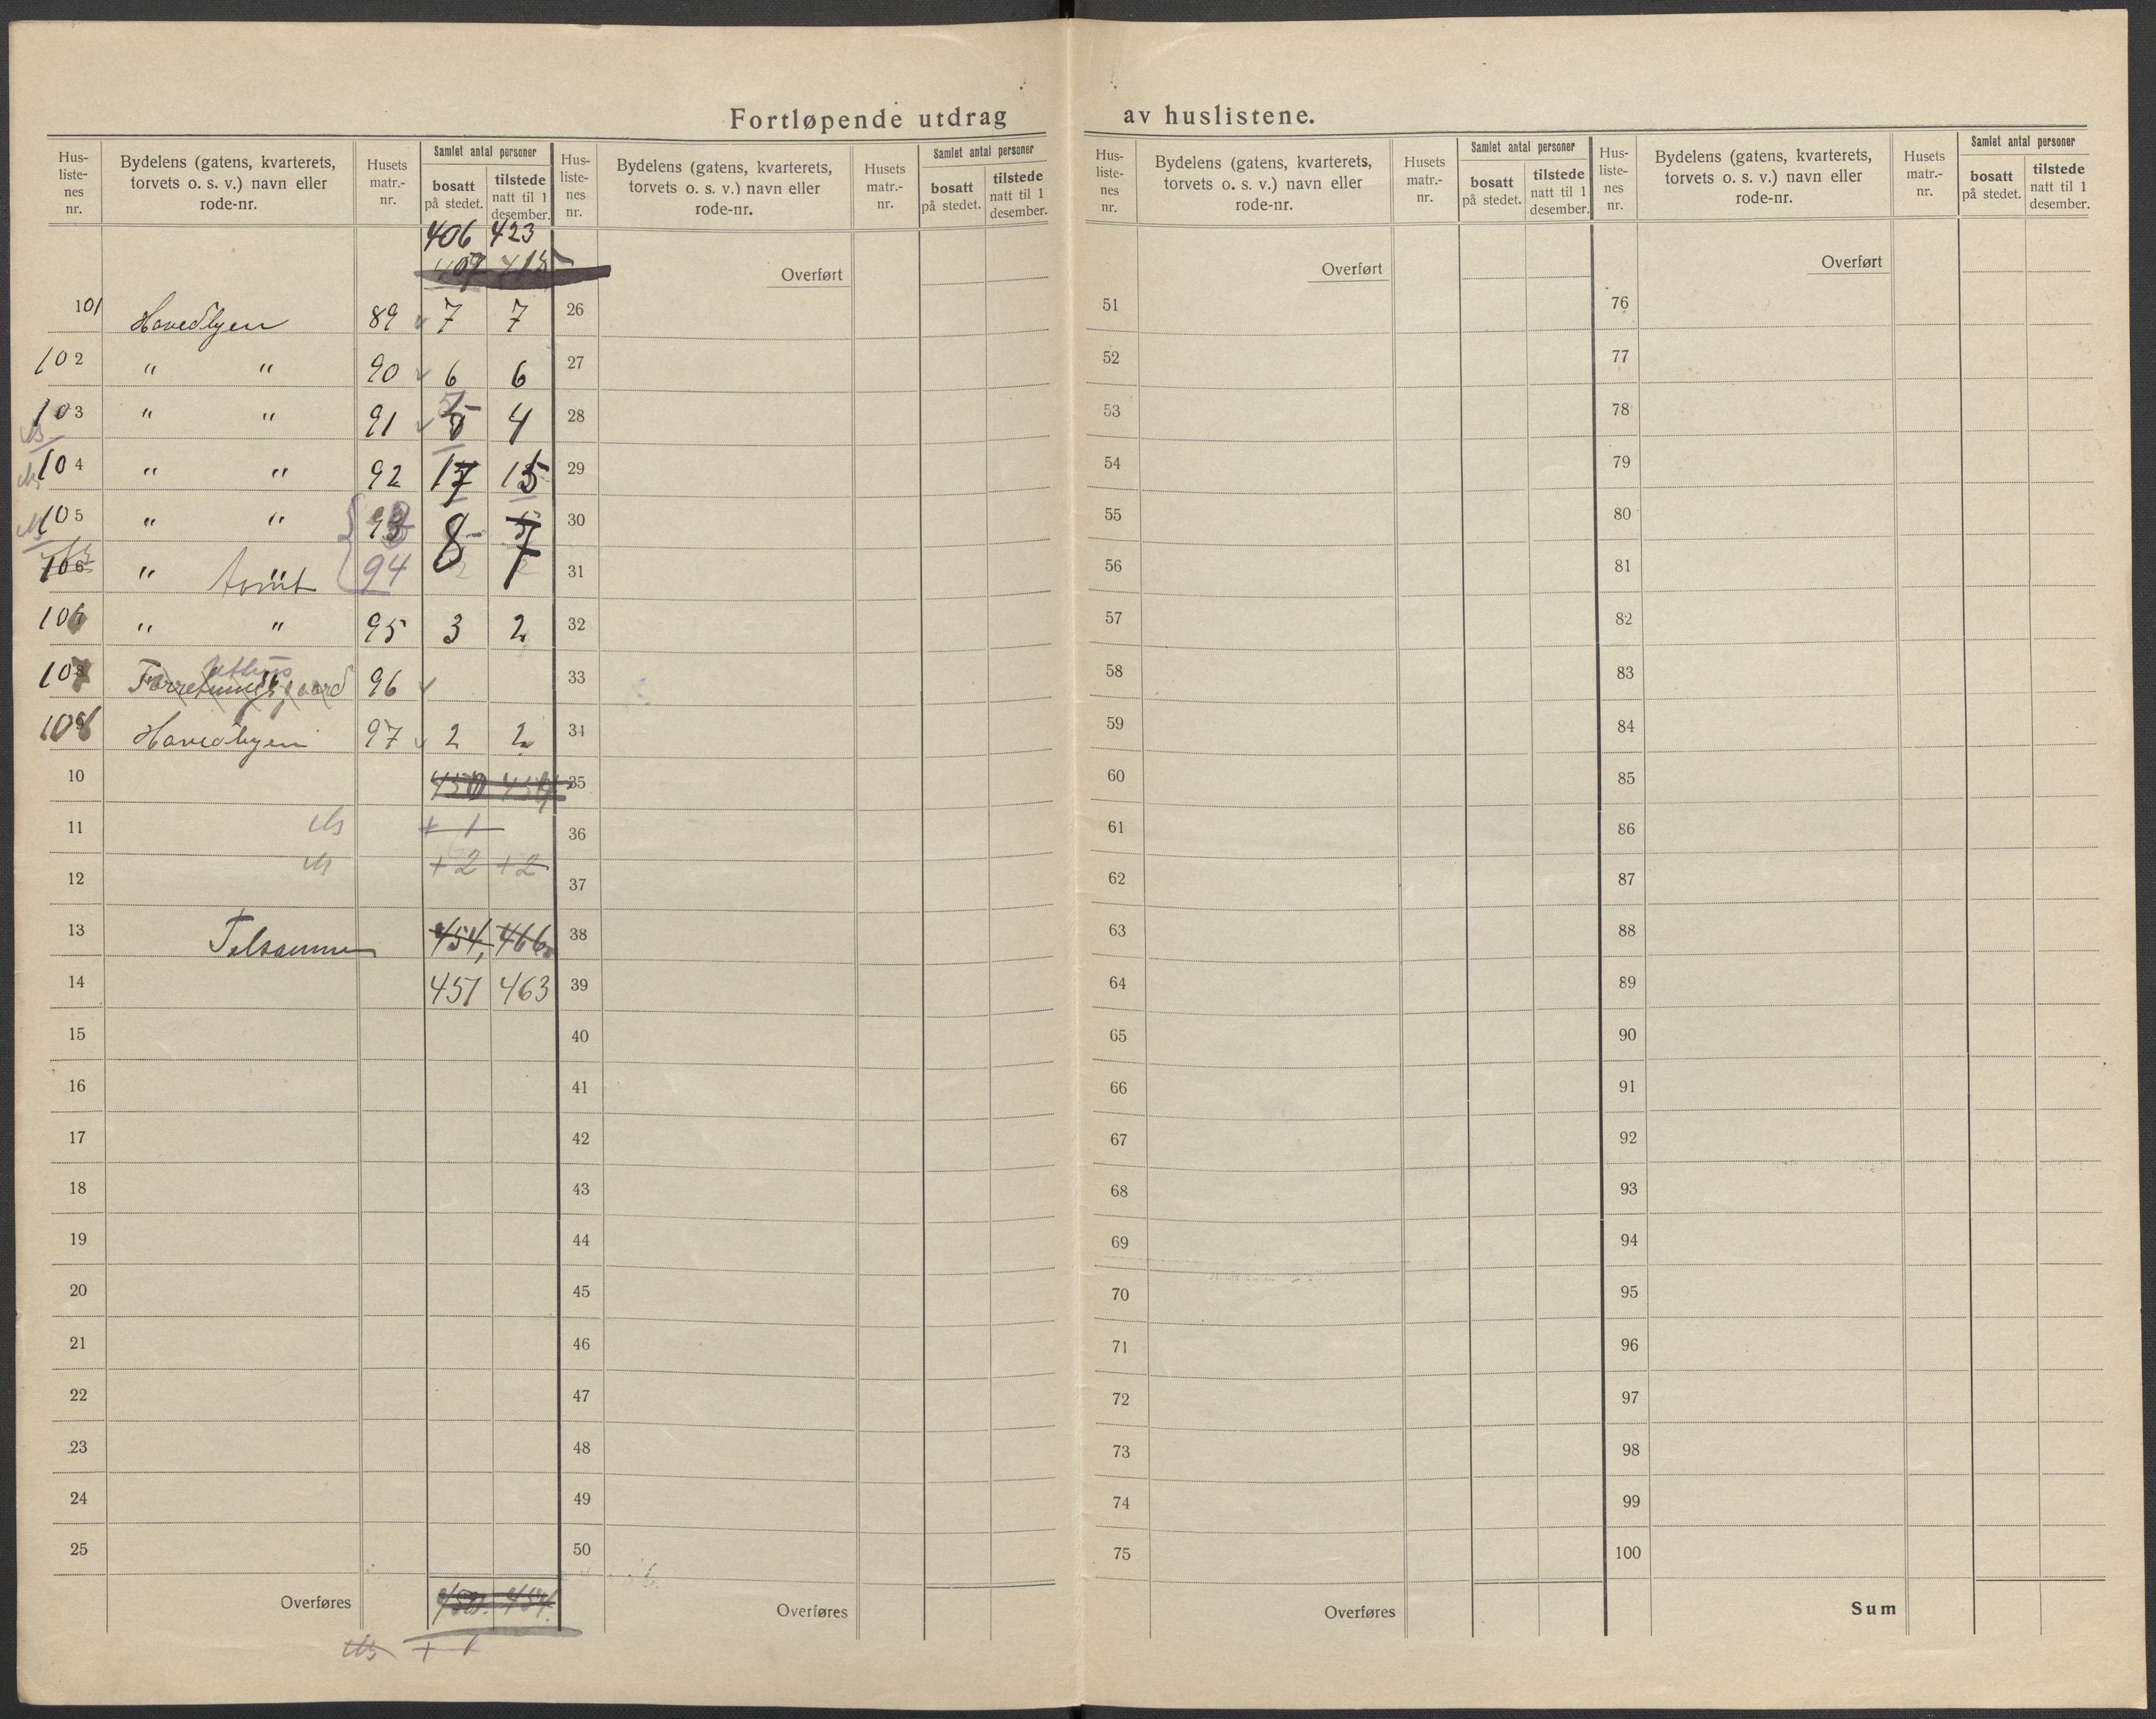 Fortløpende utdrag av huslistene.
Hus-
liste-
nes
nr.
Bydelens (gatens, kvarterets,
torvets o. s. v.) navn eller
rode-nr.
Husets
matr.-
nr.
Samlet antal personer
bosatt
på stedet.
tilstede
natt til 1
desember.
Hus-
liste-
nes
nr.
Bydelens (gatens, kvarterets,
torvets o. s. v.) navn eller
rode-nr.
Husets
matr.-
nr.
Samlet antal personer
bosatt
på stedet.
tilstede
natt til 1
desember.
Hus-
liste-
nes
nr.
Bydelens (gatens, kvarterets,
torvets o. s. v.) navn eller
rode-nr.
Husets
matr.-
nr.
Samlet antal personer
bosatt
på stedet.
tilstede
natt til 1
desember.
Hus-
liste-
nes
nr.
Bydelens (gatens, kvarterets,
torvets o. s. v.) navn eller
rode-nr.
Husets
matr.-
nr.
Samlet antal personer
bosatt
på stedet.
tilstede
natt til 1
desember.
406 423
101 Hovedbyen 89 7 7
102 " " 90 6 6
103 " " 91 5 4
104 " " 92 17 15
105 " " 93 8 7
106 " " 94
106 " " 95 3 2
107 Forretningsgaard 96
108 Hovedbyen 97 2 2
10 450
11 + 1
12 +2 +2
13 Tilsammen 454, 466
14 451 463
15
16
17
18
19
20
21
22
23
24
25
Overføres
+ 1
Overført
26
27
28
29
30
31
32
33
34
35
36
37
38
39
40
41
42
43
44
45
46
47
48
49
50
Overføres
Overført
51
52
53
54
55
56
57
58
59
60
61
62
63
64
65
66
67
68
69
70
71
72
73
74
75
Overføres
Overført
76
77
78
79
80
81
82
83
84
85
86
87
88
89
90
91
92
93
94
95
96
97
98
99
100
Sum